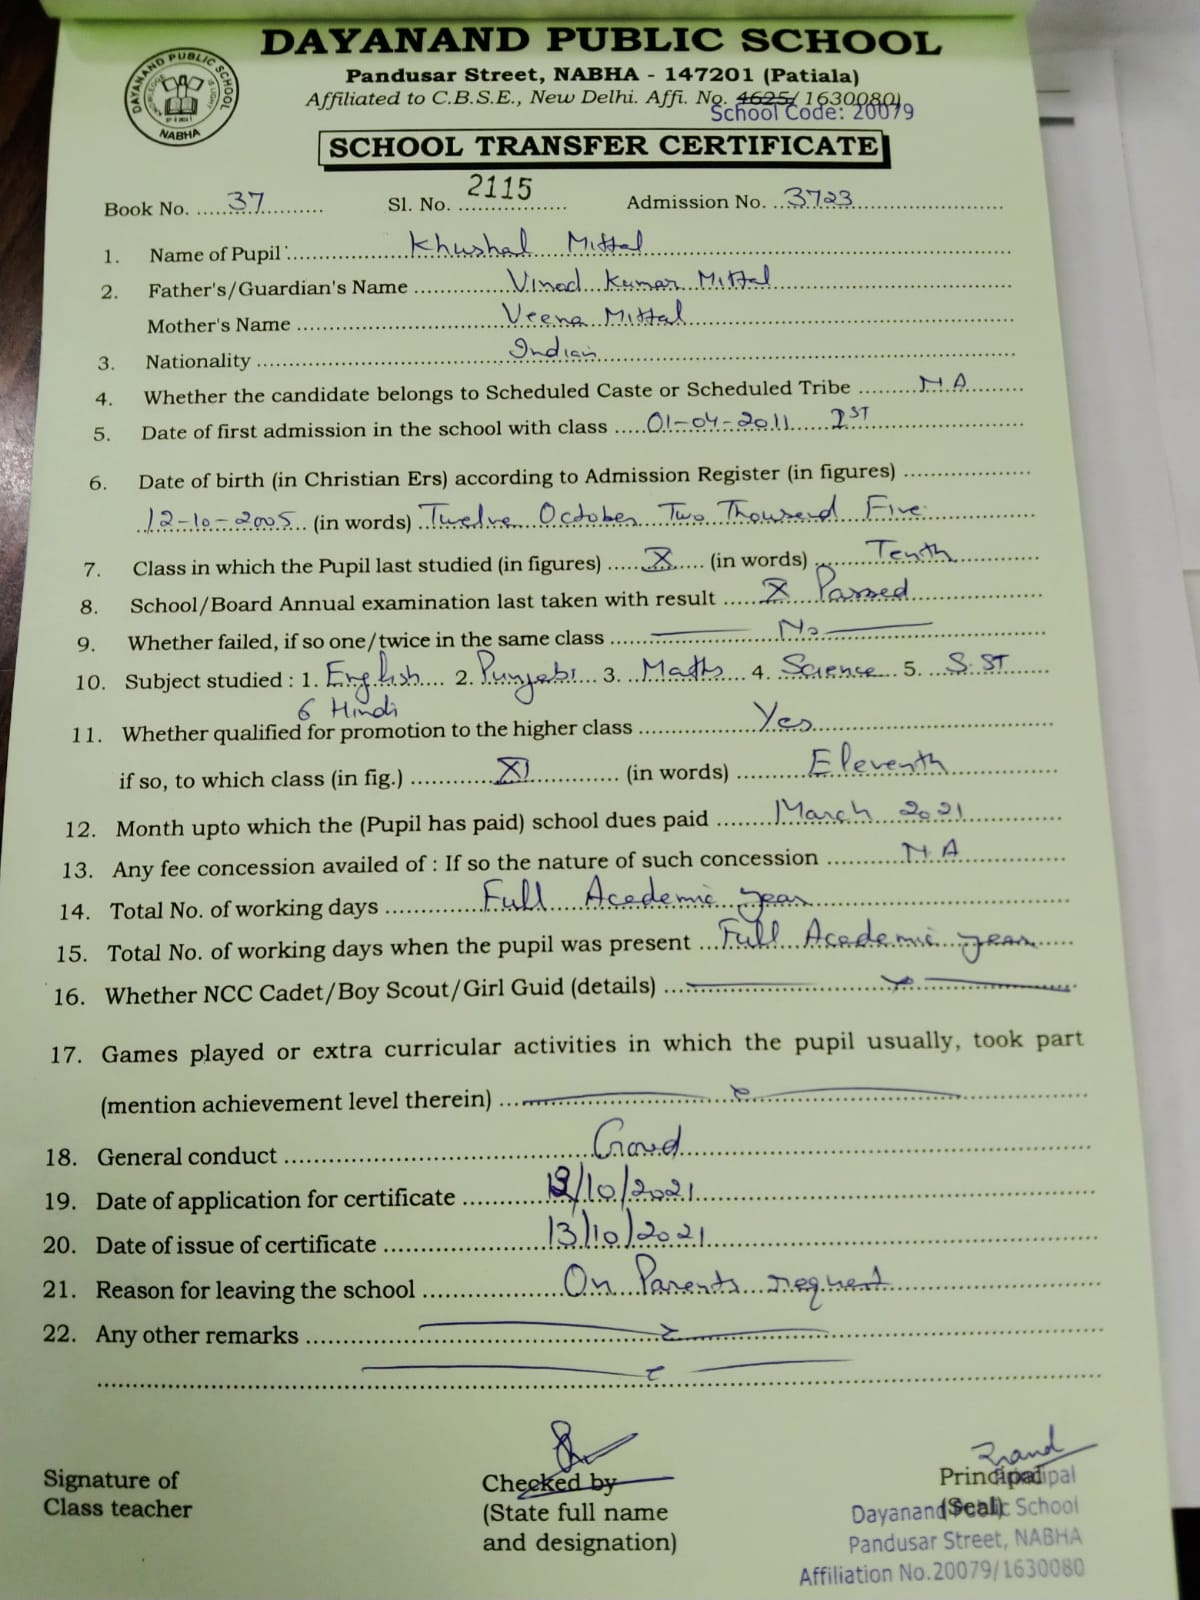 DAYANAND PUBLIC SCHOOL
Pandusar Street, NABHA - 147201 (Patiala)
Affiliated to C.B.S.E., New Delhi. Affi. No. 4625/ 1630080)
School Code: 20079
DAYANAND PUBLIC SCHOOL
NABHA
SCHOOL TRANSFER CERTIFICATE
Book No. 37 Sl. No. 2115 Admission No. 3723
1. Name of Pupil Khushal Mittal
2. Father's/Guardian's Name Vinod Kumar Mittal
Mother's Name Veena Mittal
3. Nationality Indian
4. Whether the candidate belongs to Scheduled Caste or Scheduled Tribe N.A
5. Date of first admission in the school with class 01-04-2011 IST
6. Date of birth (in Christian Ers) according to Admission Register (in figures)
12-10-2005 (in words) Twelve October Two Thousand Five
7. Class in which the Pupil last studied (in figures) X (in words) Tenth
8. School/Board Annual examination last taken with result X Passed
9. Whether failed, if so one/twice in the same class No
10. Subject studied : 1. English 2. Punjabi 3. Maths 4. Science 5. S.ST
6 Hindi
11. Whether qualified for promotion to the higher class Yes
if so, to which class (in fig.) XI (in words) Eleventh
12. Month upto which the (Pupil has paid) school dues paid March 2021
13. Any fee concession availed of : If so the nature of such concession N.A
14. Total No. of working days Full Academic year
15. Total No. of working days when the pupil was present Full Academic year
16. Whether NCC Cadet/Boy Scout/Girl Guid (details)
17. Games played or extra curricular activities in which the pupil usually, took part
(mention achievement level therein)
18. General conduct Good
19. Date of application for certificate /10/2021
20. Date of issue of certificate 13/10/2021
21. Reason for leaving the school On Parents request
22. Any other remarks
Signature of Checked by Principal Principal
Class teacher (State full name (Seal) Dayanand Public School
and designation) Pandusar Street, NABHA
Affiliation No.20079/1630080